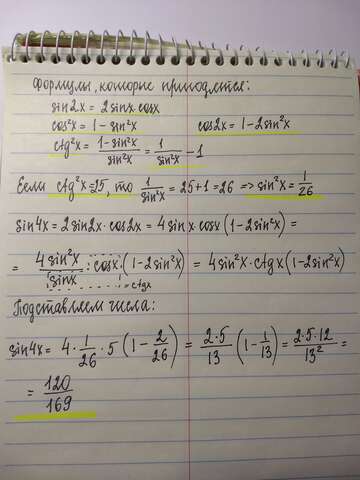 Формулы, которые пригодятся:
sin2x = 2sinx cosx
cos²x = 1 - sin²x    cos2x = 1 - 2sin²x
ctg²x = (1-sin²x)/(sin²x) = 1/(sin²x) - 1
Если ctg²x = 25, то 1/(sin²x) = 25+1 = 26 => sin²x = 1/26
sin4x = 2sin2x·cos2x = 4sinx·cosx(1-2sin²x) =
= (4sin²x)/(sinx) · cosx·(1-2sin²x) = 4sin²x·ctgx(1-2sin²x)
= ctgx
Подставляем числа:
sin4x = 4·1/26·5(1 - 2/26) = (2·5)/13 (1 - 1/13) = (2·5·12)/13² =
= 120/169